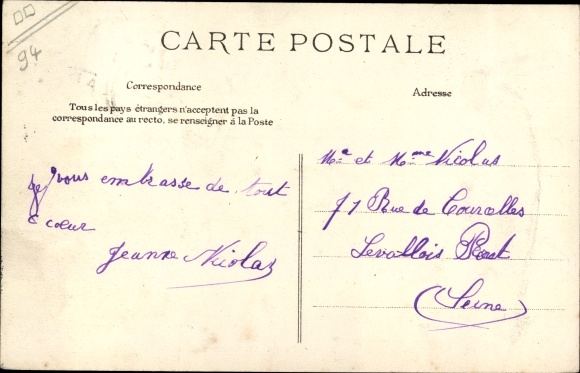 94
CARTE POSTALE
Correspondance
Tous les pays étrangers n'acceptent pas la
correspondance au recto, se renseigner à la Poste
Je vous embrasse de tout
coeur
Jeanne Nicolas
Adresse
Mr et Mme Nicolas
71 Rue de Courcelles
Levallois Perret
(Seine)